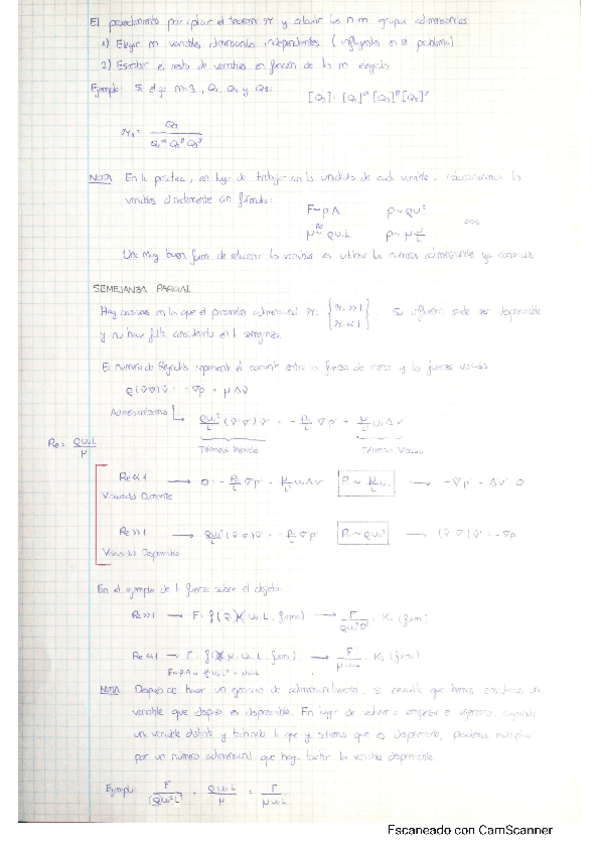 El procedimiento para aplicar el teorema π y calcular los n-m grupos adimensionales
1) Elegir m variables dimensionales independientes (influyentes en el problema)
2) Escribir el resto de variables en función de las m elegidas
Ejemplo: Si elijo m=3, Q₁, Q₂ y Q₃: [Q₇] = [Q₁]^α [Q₂]^β [Q₃]^γ
π₁ = Q₇ / Q₁^α Q₂^β Q₃^γ
NOTA En la práctica, en lugar de trabajar con las unidades de cada variable, relacionaremos las
variables directamente con fórmulas:
F~pA p~ρu²
μ~ρuL p~μ
Una muy buena forma de relacionar las variables es utilizar los números adimensionales ya conocidos
SEMEJANZA PARCIAL
Hay ocasiones en las que el parámetro adimensional π₁ {π₁>>1 π₁<<1}. Su influencia suele ser despreciable
y no hace falta considerarlo en la semejanza.
El número de Reynolds representa el cociente entre las fuerzas de inercia y las fuerzas viscosas
ρ(v·∇)v = -∇p + μΔv
Adimensionalizamos ρu₀²/L (v·∇)v = -P₀/L ∇p + μ/L² u₀Δv
Re = ρu₀L/μ
Término Inercia Término Viscoso
Re<<1 → 0 = -P₀/L ∇p + μ/L² u₀Δv P₀~μ/L u₀ → -∇p + Δv = 0
Viscosidad Dominante
Re>>1 → ρu₀²/L (v·∇)v = -P₀/L ∇p P₀~ρu₀² → (v·∇)v = -∇p
Viscosidad Despreciable
En el ejemplo de la fuerza sobre el objeto:
Re>>1 → F = f(ρ, μ, u₀, L, forma) → F/ρu₀²L² = K₁(forma)
Re<<1 → F = f(ρ, μ, u₀, L, forma) → F/μu₀L = K₂(forma)
NOTA Después de hacer un ejercicio de adimensionalización, si resulta que hemos escogido una
variable que después es despreciable. En lugar de volver a empezar el ejercicio, cogiendo
una variable distinta y tachando la que ya sabemos que es despreciable, podemos multiplicar
por un número adimensional que haga tachar la variable despreciable.
Ejemplo: F/ρu₀²L² · ρu₀L/μ = F/μu₀L
Escaneado con CamScanner